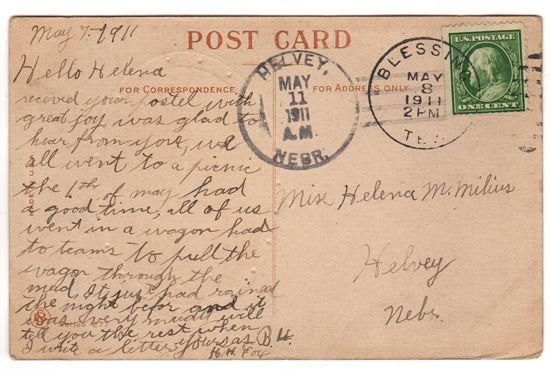 May 7-1911
POST CARD
Hello Helena
FOR CORRESPONDENCE
FOR ADDRESS ONLY
receved your postel with
great joy was glad to
hear from you, we
all went to a picnic
the 6th of may had
a good time, all of us
went in a wagon had
to teams to pull the
wagon through the
mud, It just had rained
the night befor and it
was very muddy will
tell you the rest when
I write a letter, yours as B.4.
H. Fox
HELVEY,
MAY
11
1911
A.M.
NEBR.
BLESSING
MAY
8
1911
2 PM
TEX
U.S. POSTAGE
ONE CENT
Miss Helena M. Milius
Helvey
Nebr.